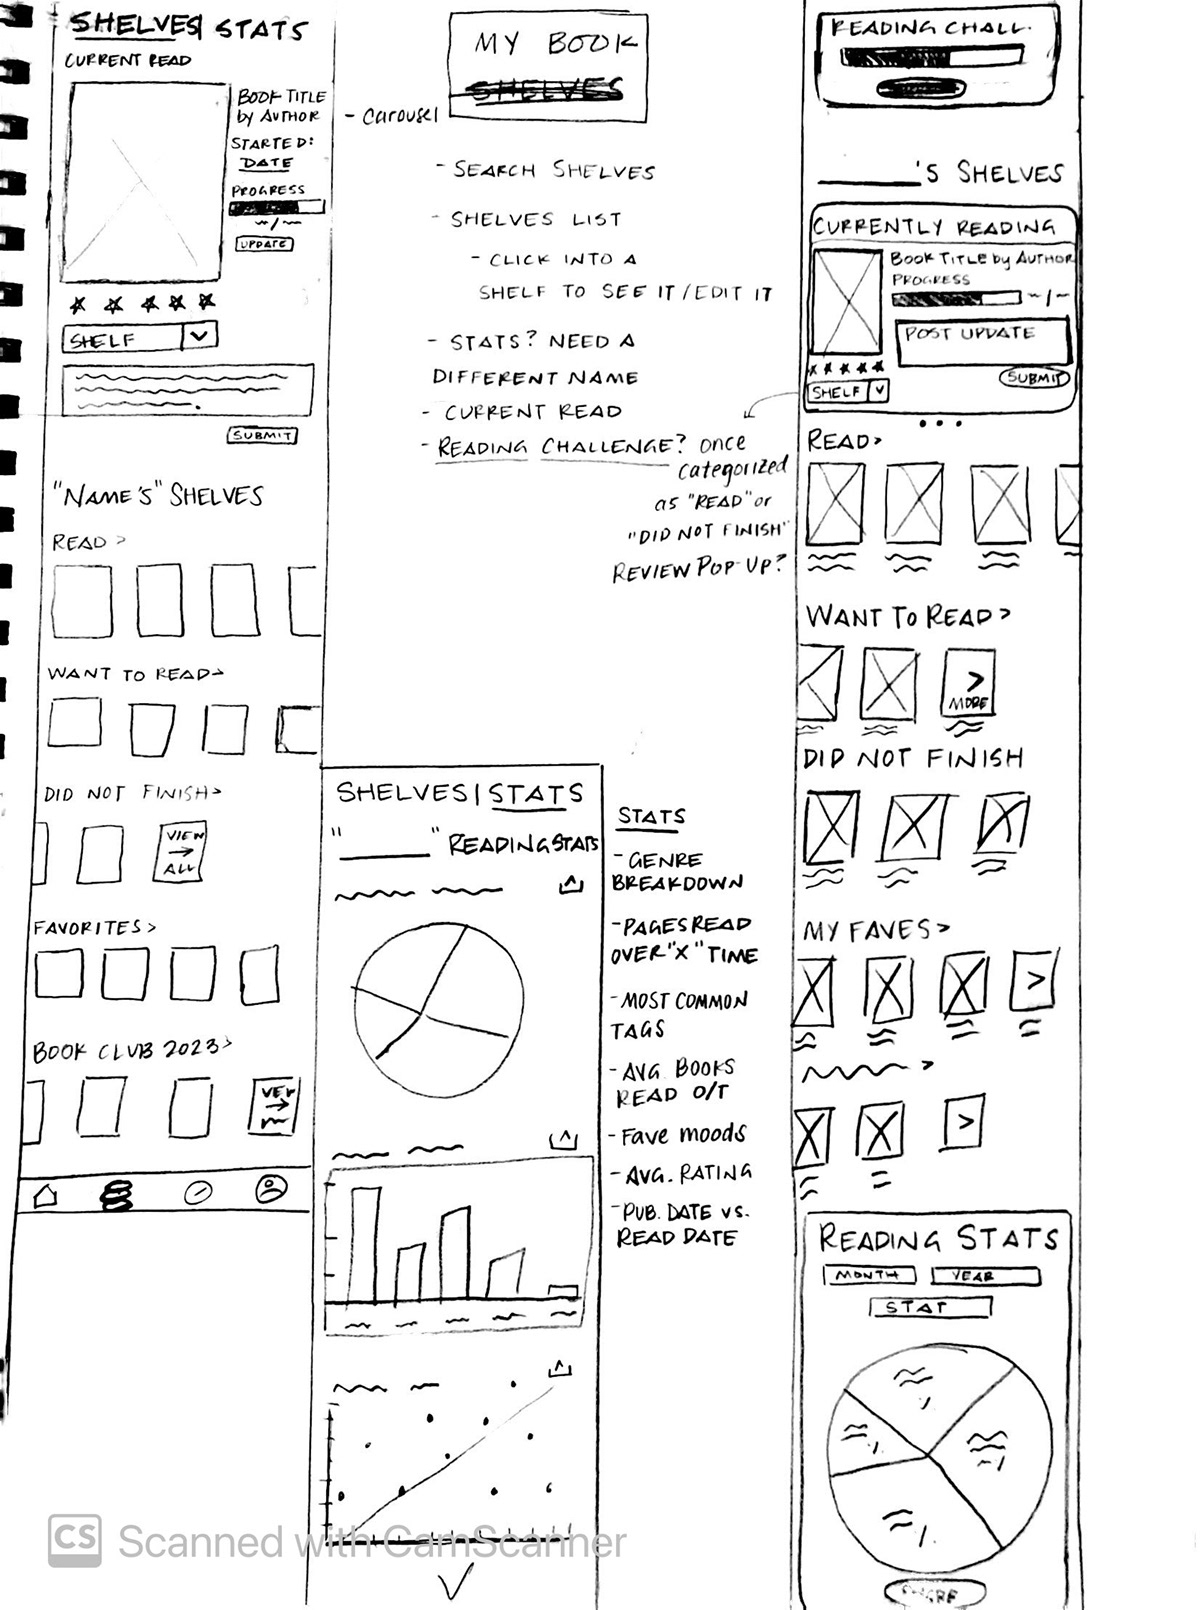 SHELVES| STATS
CURRENT READ
BOOK TITLE
by AUTHOR
STARTED:
DATE
PROGRESS
~/~
UPDATE
SHELF
SUBMIT
"NAME'S" SHELVES
READ >
WANT TO READ>
DID NOT FINISH>
VIEW
ALL
FAVORITES>
BOOK CLUB 2023>
MY BOOK
SHELVES
- Carousel
- SEARCH SHELVES
- SHELVES LIST
- CLICK INTO A
SHELF TO SEE IT/EDIT IT
- STATS? NEED A
DIFFERENT NAME
- CURRENT READ
- READING CHALLENGE? once
categorized
as "READ" or
"DID NOT FINISH"
REVIEW POP-UP?
SHELVES|STATS
"______" READING STATS
STATS
- GENRE
BREAKDOWN
- PAGES READ
OVER "X" TIME
- MOST COMMON
TAGS
- AVG. BOOKS
READ O/T
- Fave moods
- AVG. RATING
- PUB. DATE VS.
READ DATE
READING CHALL.
______'S SHELVES
CURRENTLY READING
BOOK TITLE by AUTHOR
PROGRESS
~/~
POST UPDATE
SUBMIT
SHELF
READ>
WANT TO READ>
MORE
DID NOT FINISH
MY FAVES>
READING STATS
MONTH
YEAR
STAT
SHARE
CS Scanned with CamScanner